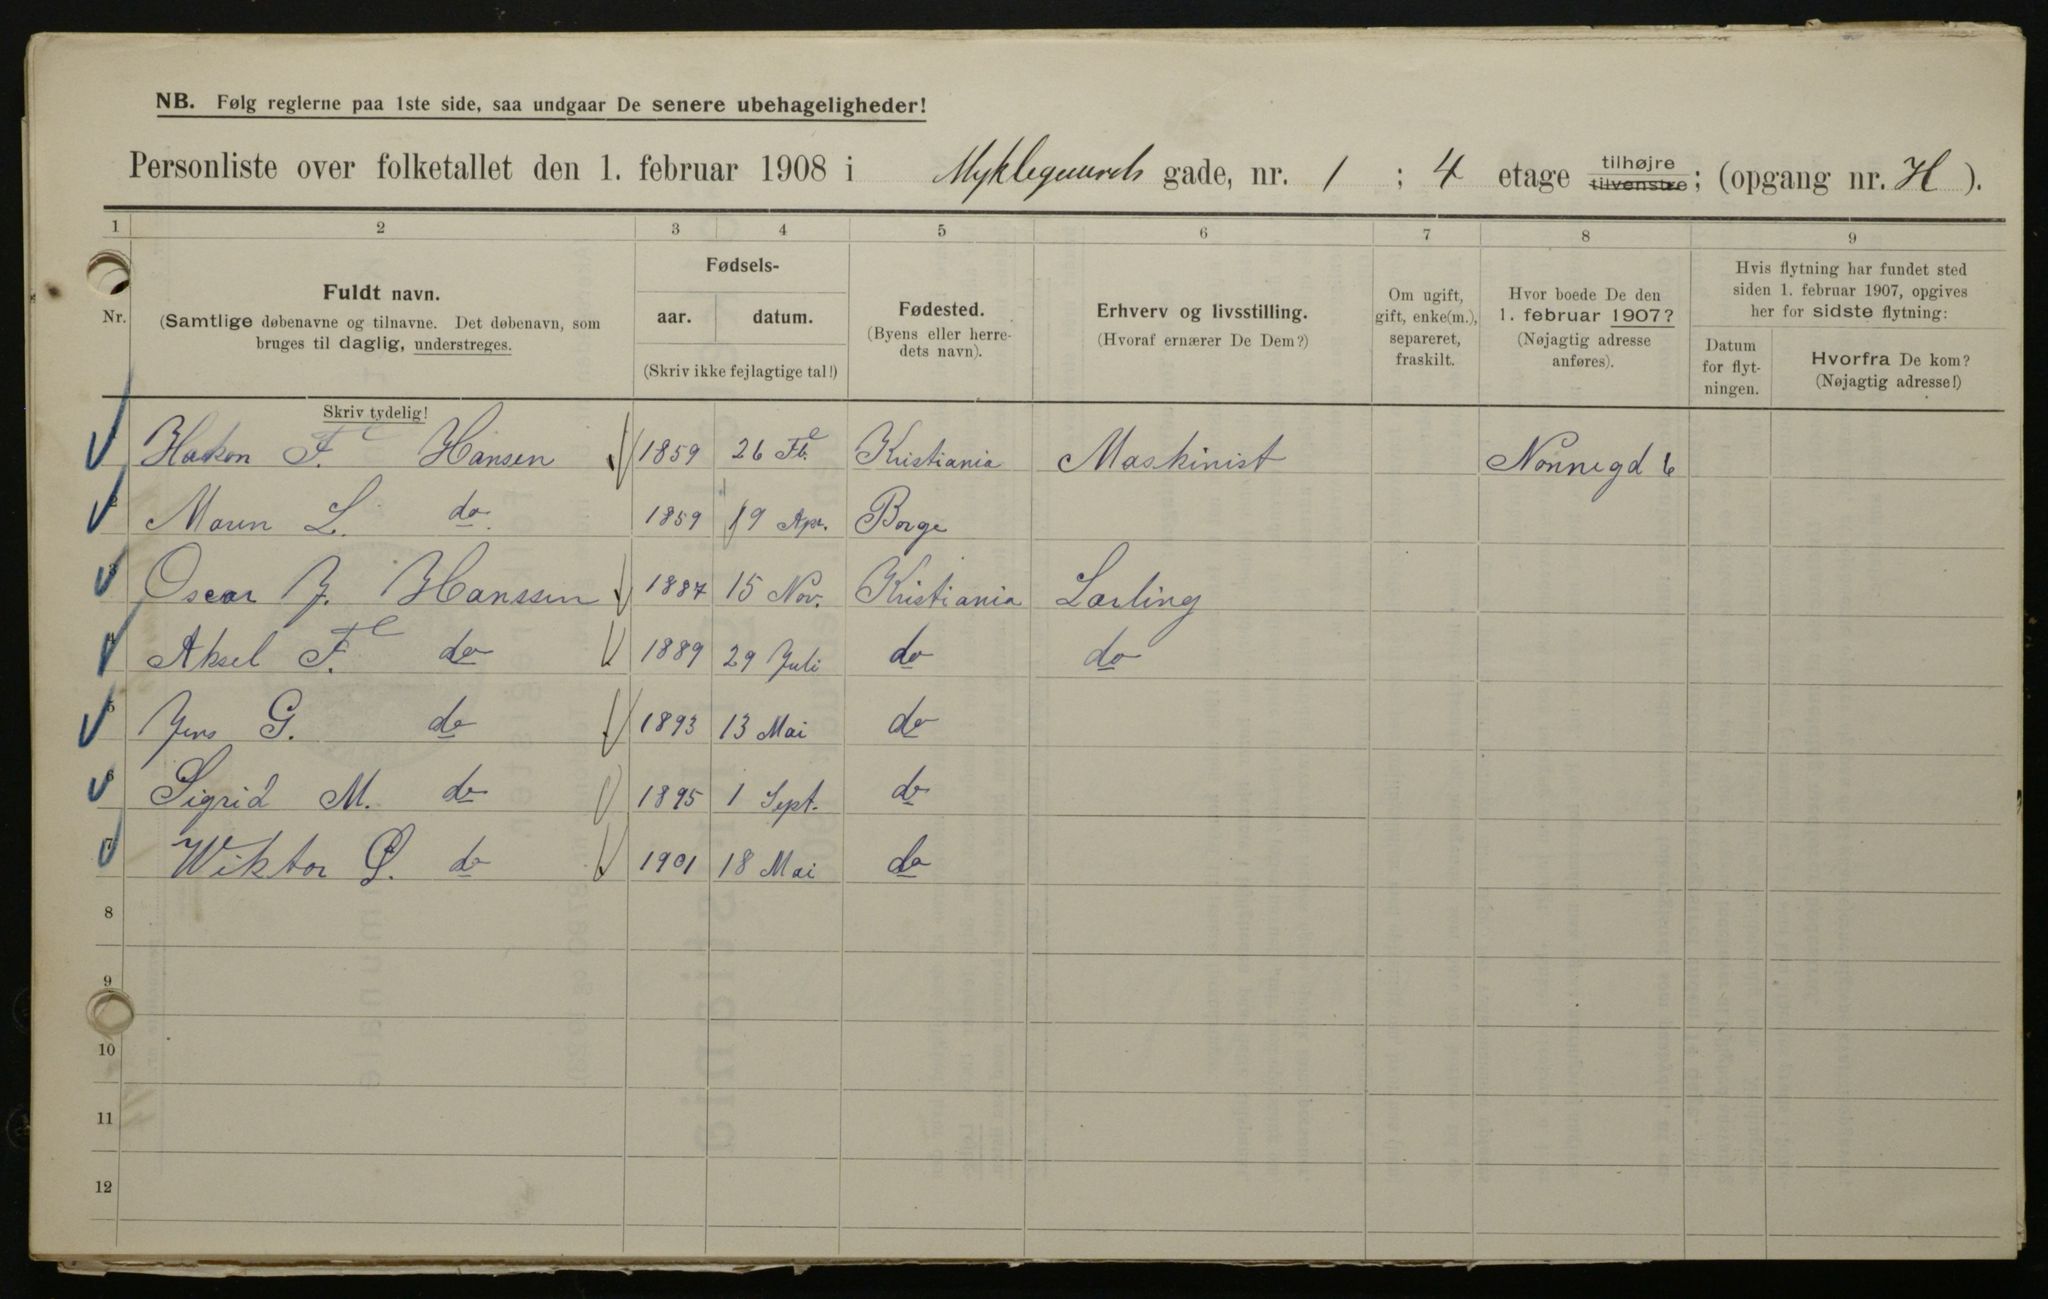 NB. Følg reglerne paa 1ste side, saa undgaar De senere ubehageligheder!
Personliste over folketallet den 1. februar 1908 i Myklegaards gade, nr. 1 ; 4 etage tilhøjre tilvenstre ; (opgang nr. H ).
1 2 3 4 5 6 7 8 9
Nr.
Fuldt navn.
(Samtlige døbenavne og tilnavne. Det døbenavn, som
bruges til daglig, understreges.
Skriv tydelig!
Fødsels-
aar. datum.
(Skriv ikke fejlagtige tal!)
Fødested.
(Byens eller herre-
dets navn).
Erhverv og livsstilling.
(Hvoraf ernærer De Dem?)
Om ugift,
gift, enke(m.),
separeret,
fraskilt.
Hvor boede De den
1. februar 1907?
(Nøjagtig adresse
anføres).
Hvis flytning har fundet sted
siden 1. februar 1907, opgives
her for sidste flytning:
Datum
for flyt-
ningen.
Hvorfra De kom?
(Nøjagtig adresse!)
Hakon F. Hansen 1859 26 Fb. Kristiania Maskinist Nonnegd 6
2 Maren L. do 1859 19 Apr. Borge
3 Oscar J. Hanssen 1887 15 Nov. Kristiania Lærling
4 Aksel F. do 1889 29 Juli do do
5 Jens G. do 1893 13 Mai do
6 Sigrid M. do 1895 1 Sept. do
7 Wiktor do 1901 18 Mai do
8
9
10
11
12